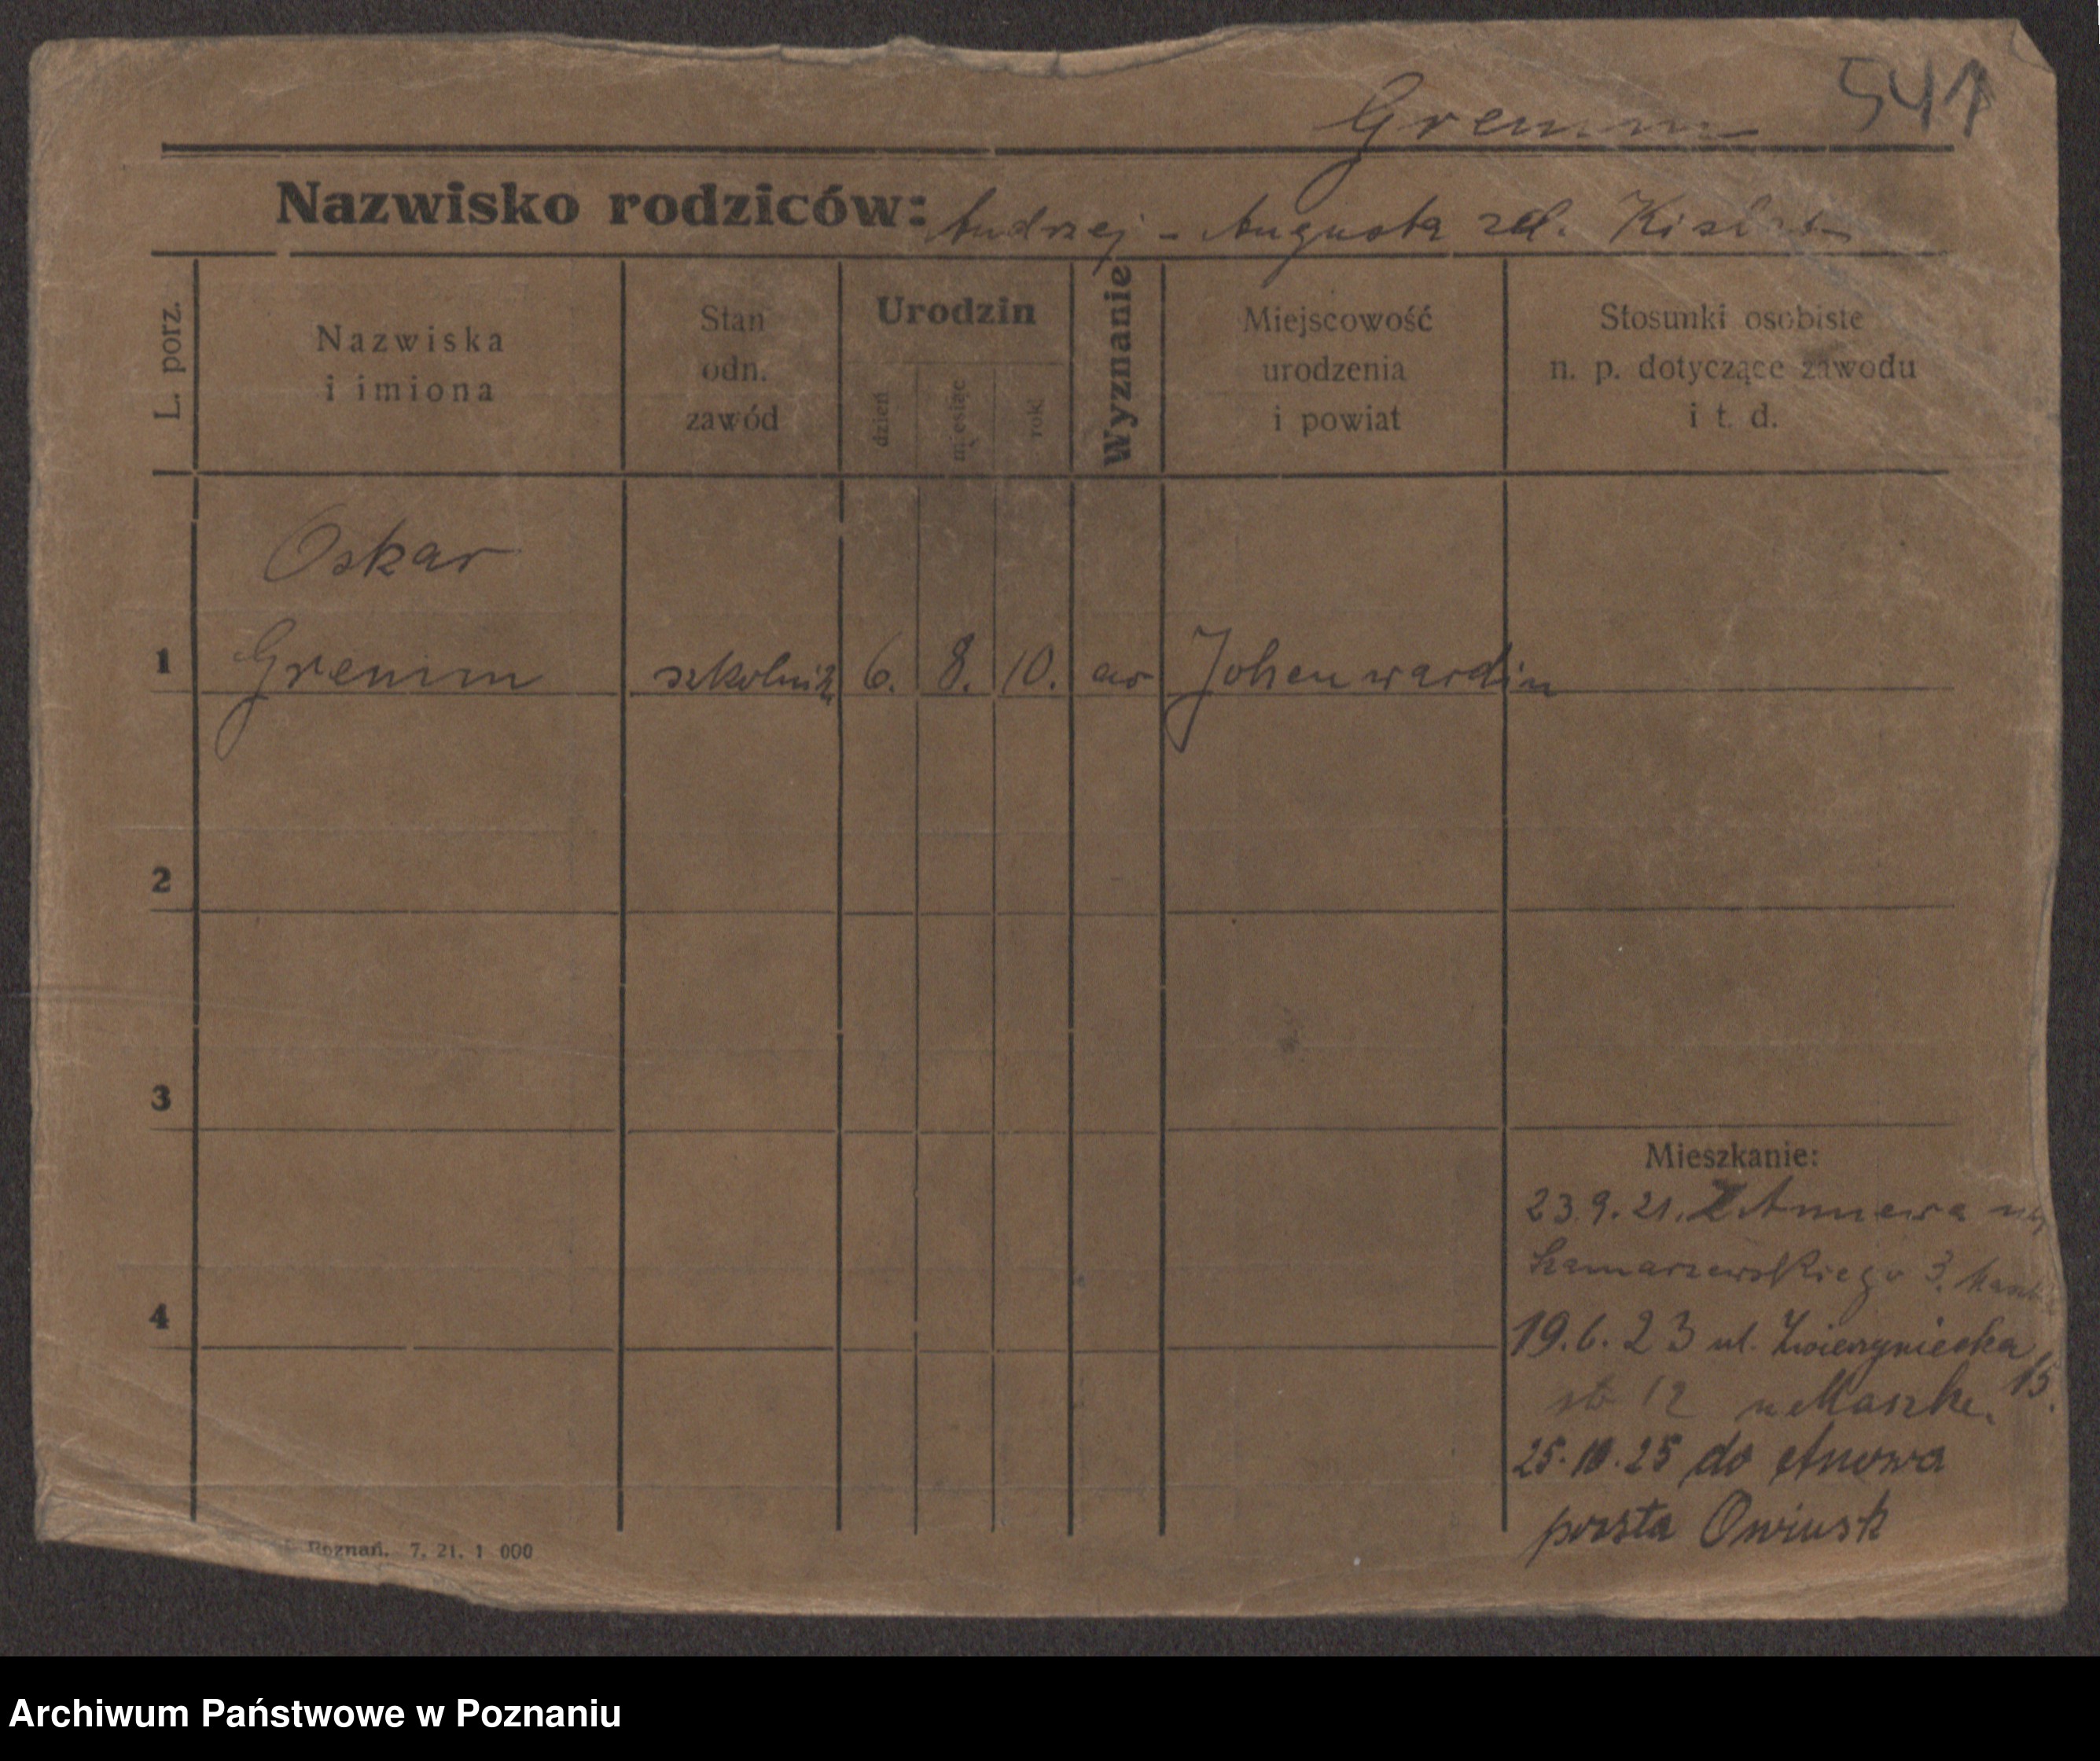 541
Gremm
Nazwisko rodziców: Andrzej - Augusta
L. porz.
Nazwiska
i imiona
Stan
odn.
zawód
Urodzin
dzień
miesiąc
rok
Wyznanie
Miejscowość
urodzenia
i powiat
Stosunki osobiste
n. p. dotyczące zawodu
i t. d.
Oskar
1 Gremm szkolnik 6. 8. 10. Johenwardin
2
3
4
Mieszkanie:
23.9.21. Z Annowa
3.
19.6.23 ul. Zwierzyniecka 15.
12 u Maszke.
25.10.25 do
poczta Owinsk
Poznań. 7. 21. 1 000
Archiwum Państwowe w Poznaniu